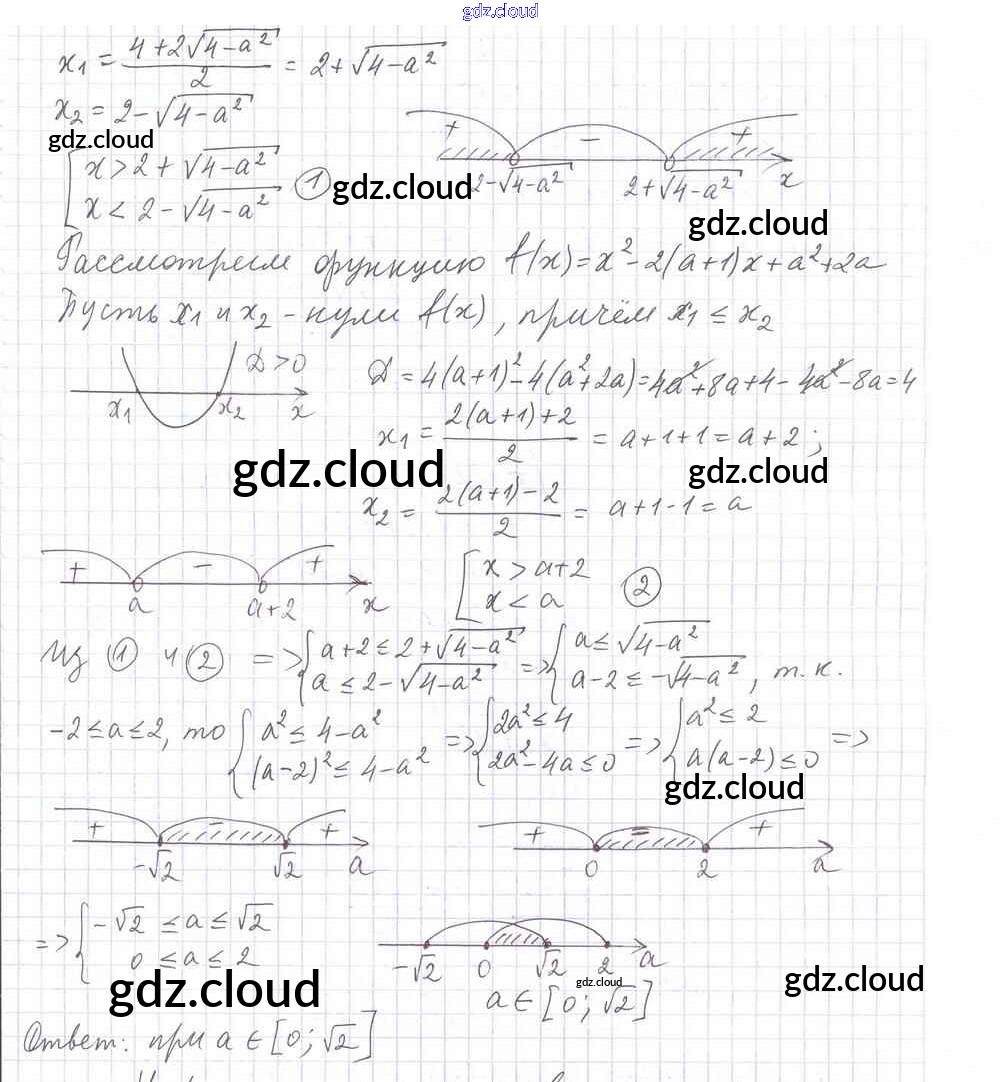 gdz.cloud
x₁ = (4+2√(4-a²))/2 = 2+√(4-a²)
x₂ = 2-√(4-a²)
gdz.cloud
+ - +
2-√(4-a²) 2+√(4-a²) x
[ x > 2+√(4-a²)
x < 2-√(4-a²) ① gdz.cloud
gdz.cloud
Рассмотрим функцию f(x)=x²-2(a+1)x+a²+2a
Пусть x₁ и x₂ - нули f(x), причём x₁ ≤ x₂
x₁ x₂ x D>0
D = 4(a+1)²-4(a²+2a)=4a²+8a+4-4a²-8a=4
x₁ = (2(a+1)+2)/2 = a+1+1=a+2;
gdz.cloud gdz.cloud
x₂ = (2(a+1)-2)/2 = a+1-1=a
+ - +
a a+2 x
[ x > a+2
x < a ②
Из ① и ② => { a+2 ≤ 2+√(4-a²) => { a ≤ √(4-a²)
a ≤ 2-√(4-a²) a-2 ≤ -√(4-a²), т.к.
-2≤a≤2, то { a² ≤ 4-a² => { 2a² ≤ 4 => { a² ≤ 2 =>
(a-2)² ≤ 4-a² 2a²-4a ≤ 0 a(a-2) ≤ 0
gdz.cloud
+ - + + - +
-√2 √2 a 0 2 a
=> { -√2 ≤ a ≤ √2
0 ≤ a ≤ 2
-√2 0 √2 2 a
gdz.cloud gdz.cloud gdz.cloud
a ∈ [0; √2]
Ответ: при a ∈ [0; √2]